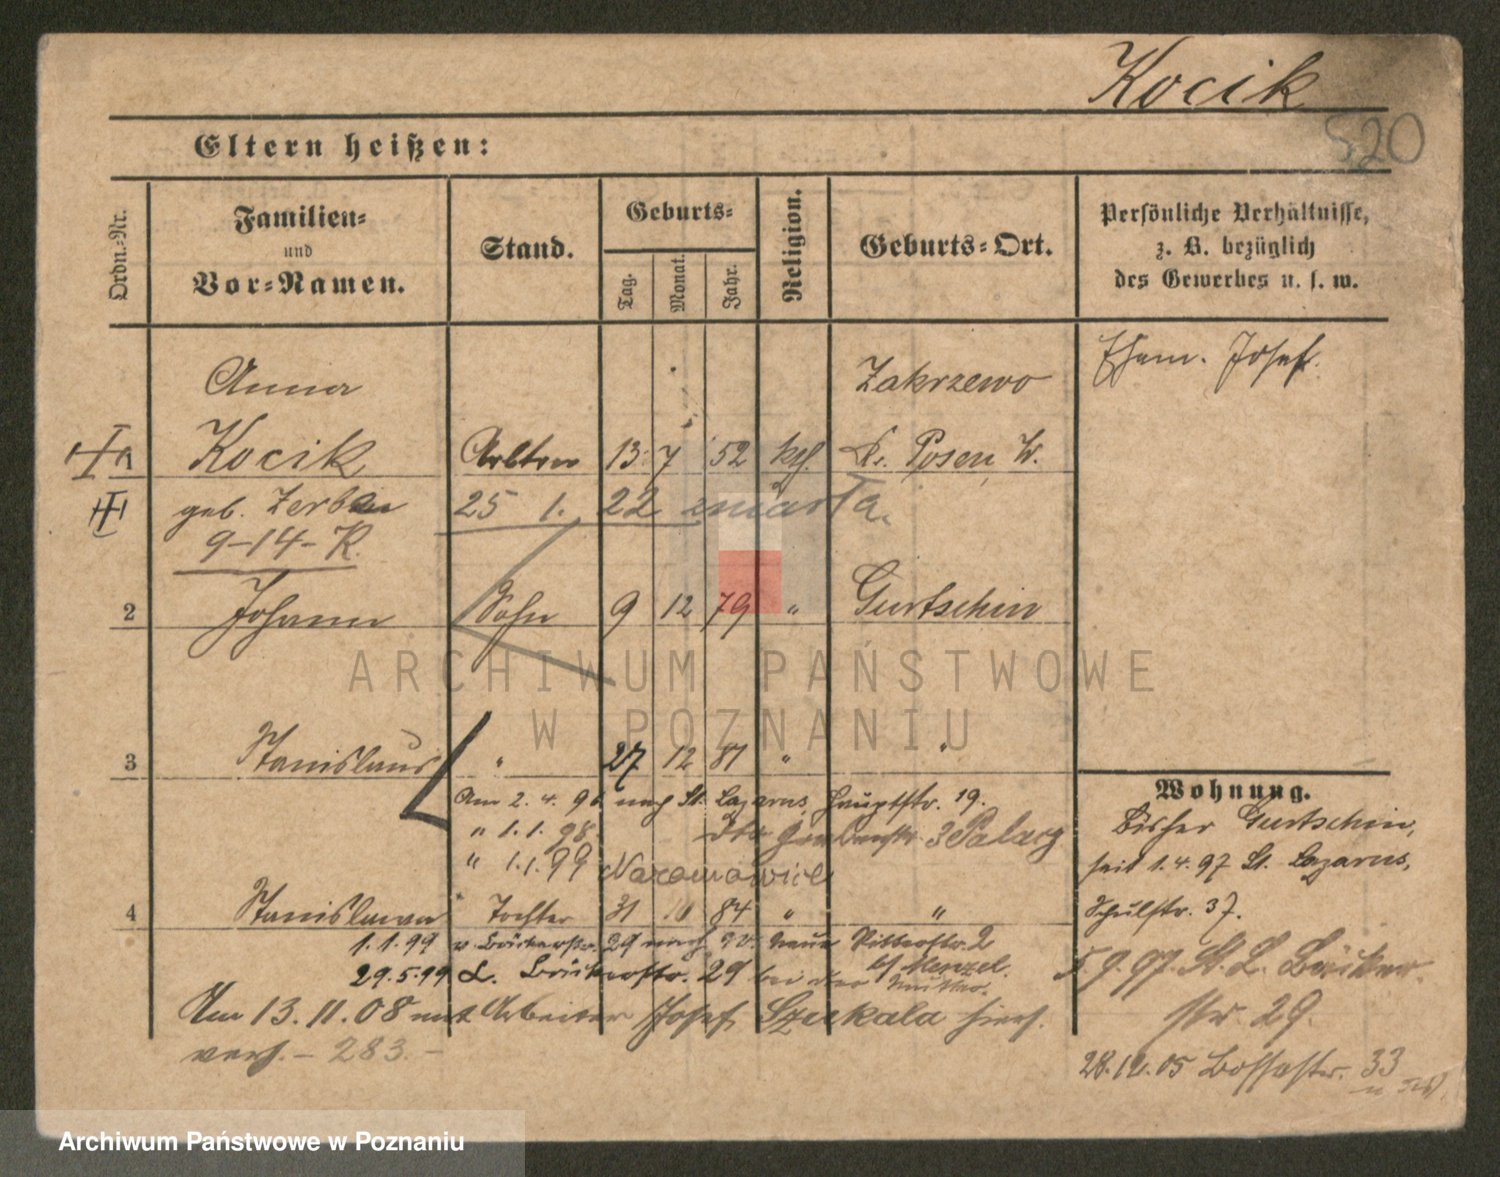 Kocik
520
Eltern heißen:
Ordn.-Nr.
Familien-
und
Vor-Namen.
Stand.
Geburts-
Tag.
Monat.
Jahr.
Religion.
Geburts-Ort.
Persönliche Verhältnisse,
z. B. bezüglich
des Gewerbes u. s. w.
Anna Zakrzewo Ehem. Josef.
Kocik 13 7 52 kth. Kr. Posen W.
geb. 25 1. 22 zmarła.
9-14-R.
2 Johann Sohn 9 12 79 " Gurtschin
ARCHIWUM PAŃSTWOWE
W POZNANIU
3 Stanislaus " 27 12 81 " "
Wohnung.
Am 2. 4. 96 nach St. Lazarus, Hauptstr. 19.
Bisher Gurtschin,
" 1.1.98 3
seit 1.4.97 St. Lazarus,
" 1.1.99 Naramowice
Schulstr. 37.
4 Tochter 31 84 " "
1.1.99 v. Bäckerstr. 29 nach neue Ritterstr. 2
5.9.97. St. L. Bäcker
29.5.99 L. 29 bei der Mutter.
b/ Menzel.
str. 29.
Am 13.11.08 mit Arbeiter Josef Szukala hier
verh. - 283. -
28.12.05 33
Archiwum Państwowe w Poznaniu